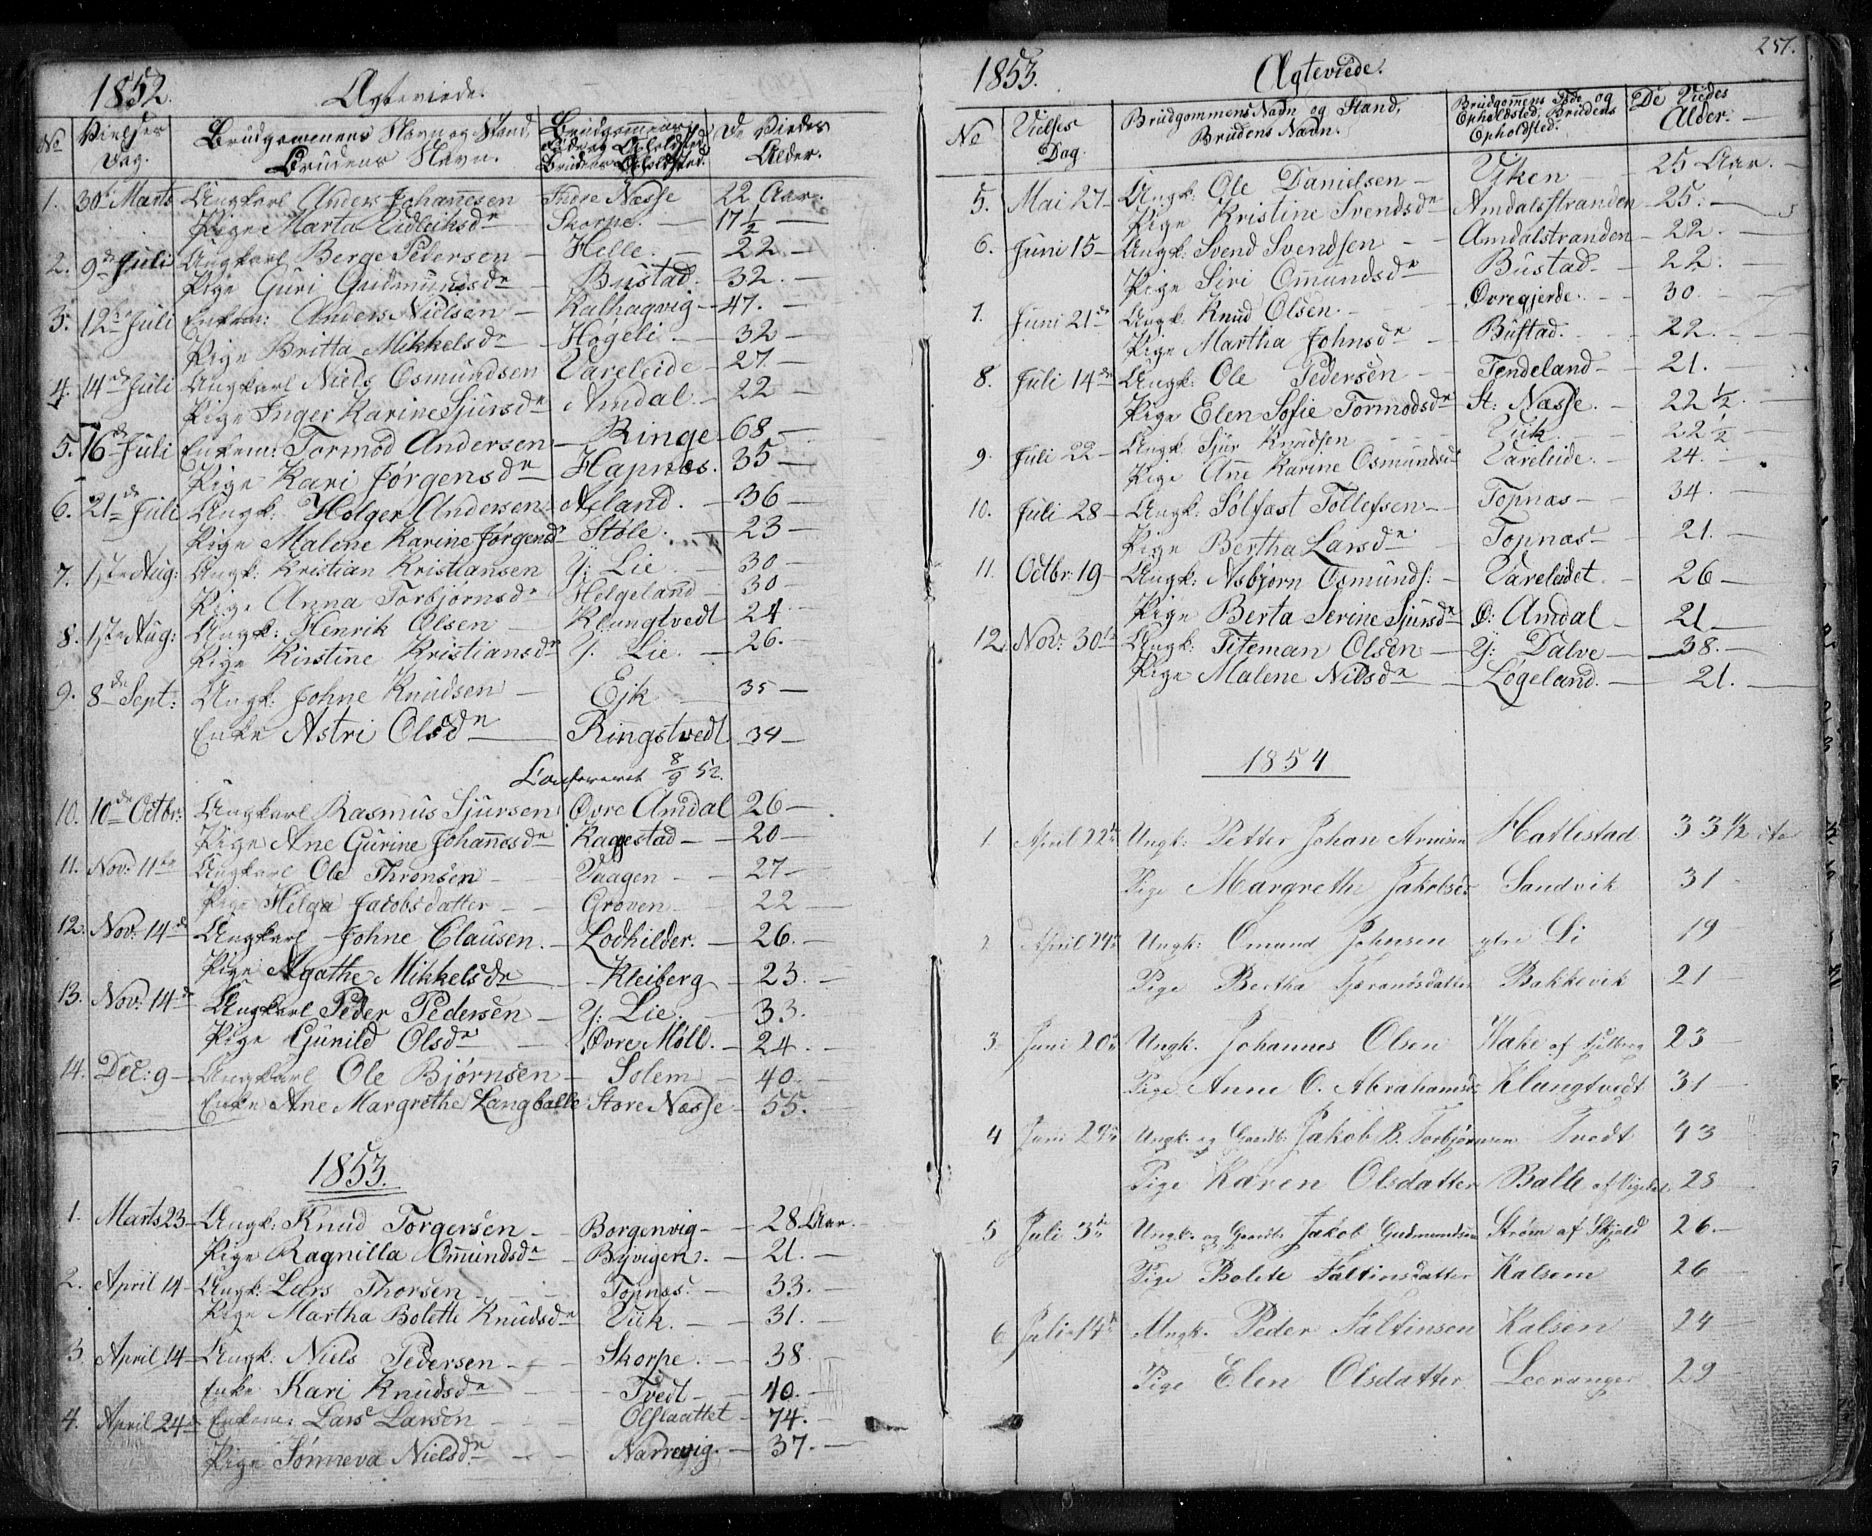 1852.
Ægteviede.
No
Vielses
Dag.
Brudgommens Navn og Stand,
Brudens Navn.
De Viedes
Alder.
1. 30 Marts Ungkarl Anders Johannesen Indre Næsse 22 Aar.
Pige Marta Eidleiksdr Skorpe. 17 1/2
2. 9de Juli Ungkarl Berge Pedersen Helle. 22
Pige Guri Gudmundsdr Bustad. 32.
3. 12te Juli Enkem: Anders Nielsen Kalhagvig 47.
Pige Britta Mikkelsdr Høgeli. 32
4. 14de Juli Ungkarl Niels Osmundsen Vareleide 27
Pige Inger Karine Sjursdr Amdal. 22
5. 16de Juli Enkem: Tormod Andersen Ringe 68
Pige Kari Jørgensdr Hapnæs. 35
6. 21de Juli Ungk: Holger Andersen Aeland. 36
Pige Malene Karine Jørgensdr Støle. 23
7. 1ste Aug: Ungk: Kristian Kristiansen Y: Lie. 30
Pige Anna Torbjornsdr Helgeland 30
8. 1ste Aug: Ungk: Henrik Olsen Klungtvedt 24
Pige Kirstine Kristiansdr Y. Lie. 26.
9. 8de Sept: Ungk: Johne Knudsen Ejk 35
Enke Astri Olsdr Ringstvedt 34
8/9 52.
10. 10de Octbr: Ungkarl Rasmus Sjursen Øvre Amdal 26
Pige Ane Gurine Johannesdr Kagestad 20
11. Nov: 11te Ungkarl Ole Thronsen Vaagen 27
Pige Helga Jacobsdatter Groven 22
12. Nov: 14de Ungkarl Johne Clausen. Lodhilder. 26.
Pige Agathe Mikkelsdr Kleiberg 23.
13. Nov: 14de Ungkarl Peder Pedersen Y: Lie. 33.
Pige Gunild Olsdr Øvre Møll. 24.
14. Dec: 9 Ungkarl Ole Bjørnsen Solem 40
Enke Ane Margrethe Langballe Store Næsse 55.
1853.
1. Marts 23 Ungk: Knud Torgersen Borgenvig 28 Aar.
Pige Ragnilla Omundsdr Byvigen. 21.
2. April 14 Ungk: Lars Thorsen Topnæs. 33.
Pige Martha Bolette Knudsdr Viik. 31.
3. April 14 Ungk: Niels Pedersen Skorpe. 38.
Enke Kari Knudsdr Tvedt 40.
4. April 24 Enkem: Lars Larsen Olslaattet 74.
Pige Sønneva Nielsdr Narrevig. 37.
257.
1853.
Ægteviede.
No
Vielses
Dag
Brudgommens Navn og Stand,
Brudens Navn.
Brudgommens Føde og
Opholdsted, Brudens
Opholdsted.
De Viedes
Alder.
5. Mai 27 Ungk: Ole Danielsen Yken 25 Aar.
Pige Kristine Svendsdr Amdalsstranden 25.
6. Juni 15 Ungk: Svend Svendsen Amdalstranden 22.
Pige Siri Omundsdr Bustad. 22.
7. Juni 21de Ungk: Knud Olsen. Øvregjerde. 30.
Pige Martha Johnsdr Bustad. 22.
8. Juli 14de Ungk: Ole Pedersen Tendeland 21.
Pige Elen Sofie Tormodsdr St: Næsse. 22 1/2.
9. Juli 22 Ungk: Sjur Knudsen Viik. 22 1/2
Pige Ane Karine Osmundsdr Vareleide. 24.
10. Juli 28 Ungk: Sølfast Tollefsen Topnæs 34.
Pige Bertha Larsdr Topnæs 21.
11. Octbr: 19 Ungk: Asbjørn Osmunds: Vareleidet. 26
Pige Berta Serine Sjursdr Ø: Amdal 21
12. Nov: 30te Ungk: Titeman Olsen Y: Dalve 38.
Pige Malene Nilsdr Løgeland. 21.
1854
1 April 22de Ungk: Petter Johan Arnisen Hatlestad 33 1/2
Pige Margrethe Jakobsdr Sandvik 31
2 April 24de Ungk: Omund Johnsen ytre Li 19
Pige Bertha Tjerandsdatter Bakkevik 21
3. Juni 20de Ungk. Johannes Olsen Hake af 23
Pige Anne O. Abrahamsdr Klungtvedt 31
4 Juni 29de Ungk: og Gaardb: Jakob B. Torbjørnsen Tvedt 43
Pige Karen Olsdatter Balle af 23
5 Juli 3de Ungk. og Gaardb. Jakob Gudmundsen Strøm af Skjold 26.
Pige Bolete Faltinsdatter Kalsem 26
6 Juli 14de Ungk. Peder Faltinsen Kalsem 24
Pige Elen Olsdatter Leeranger 22